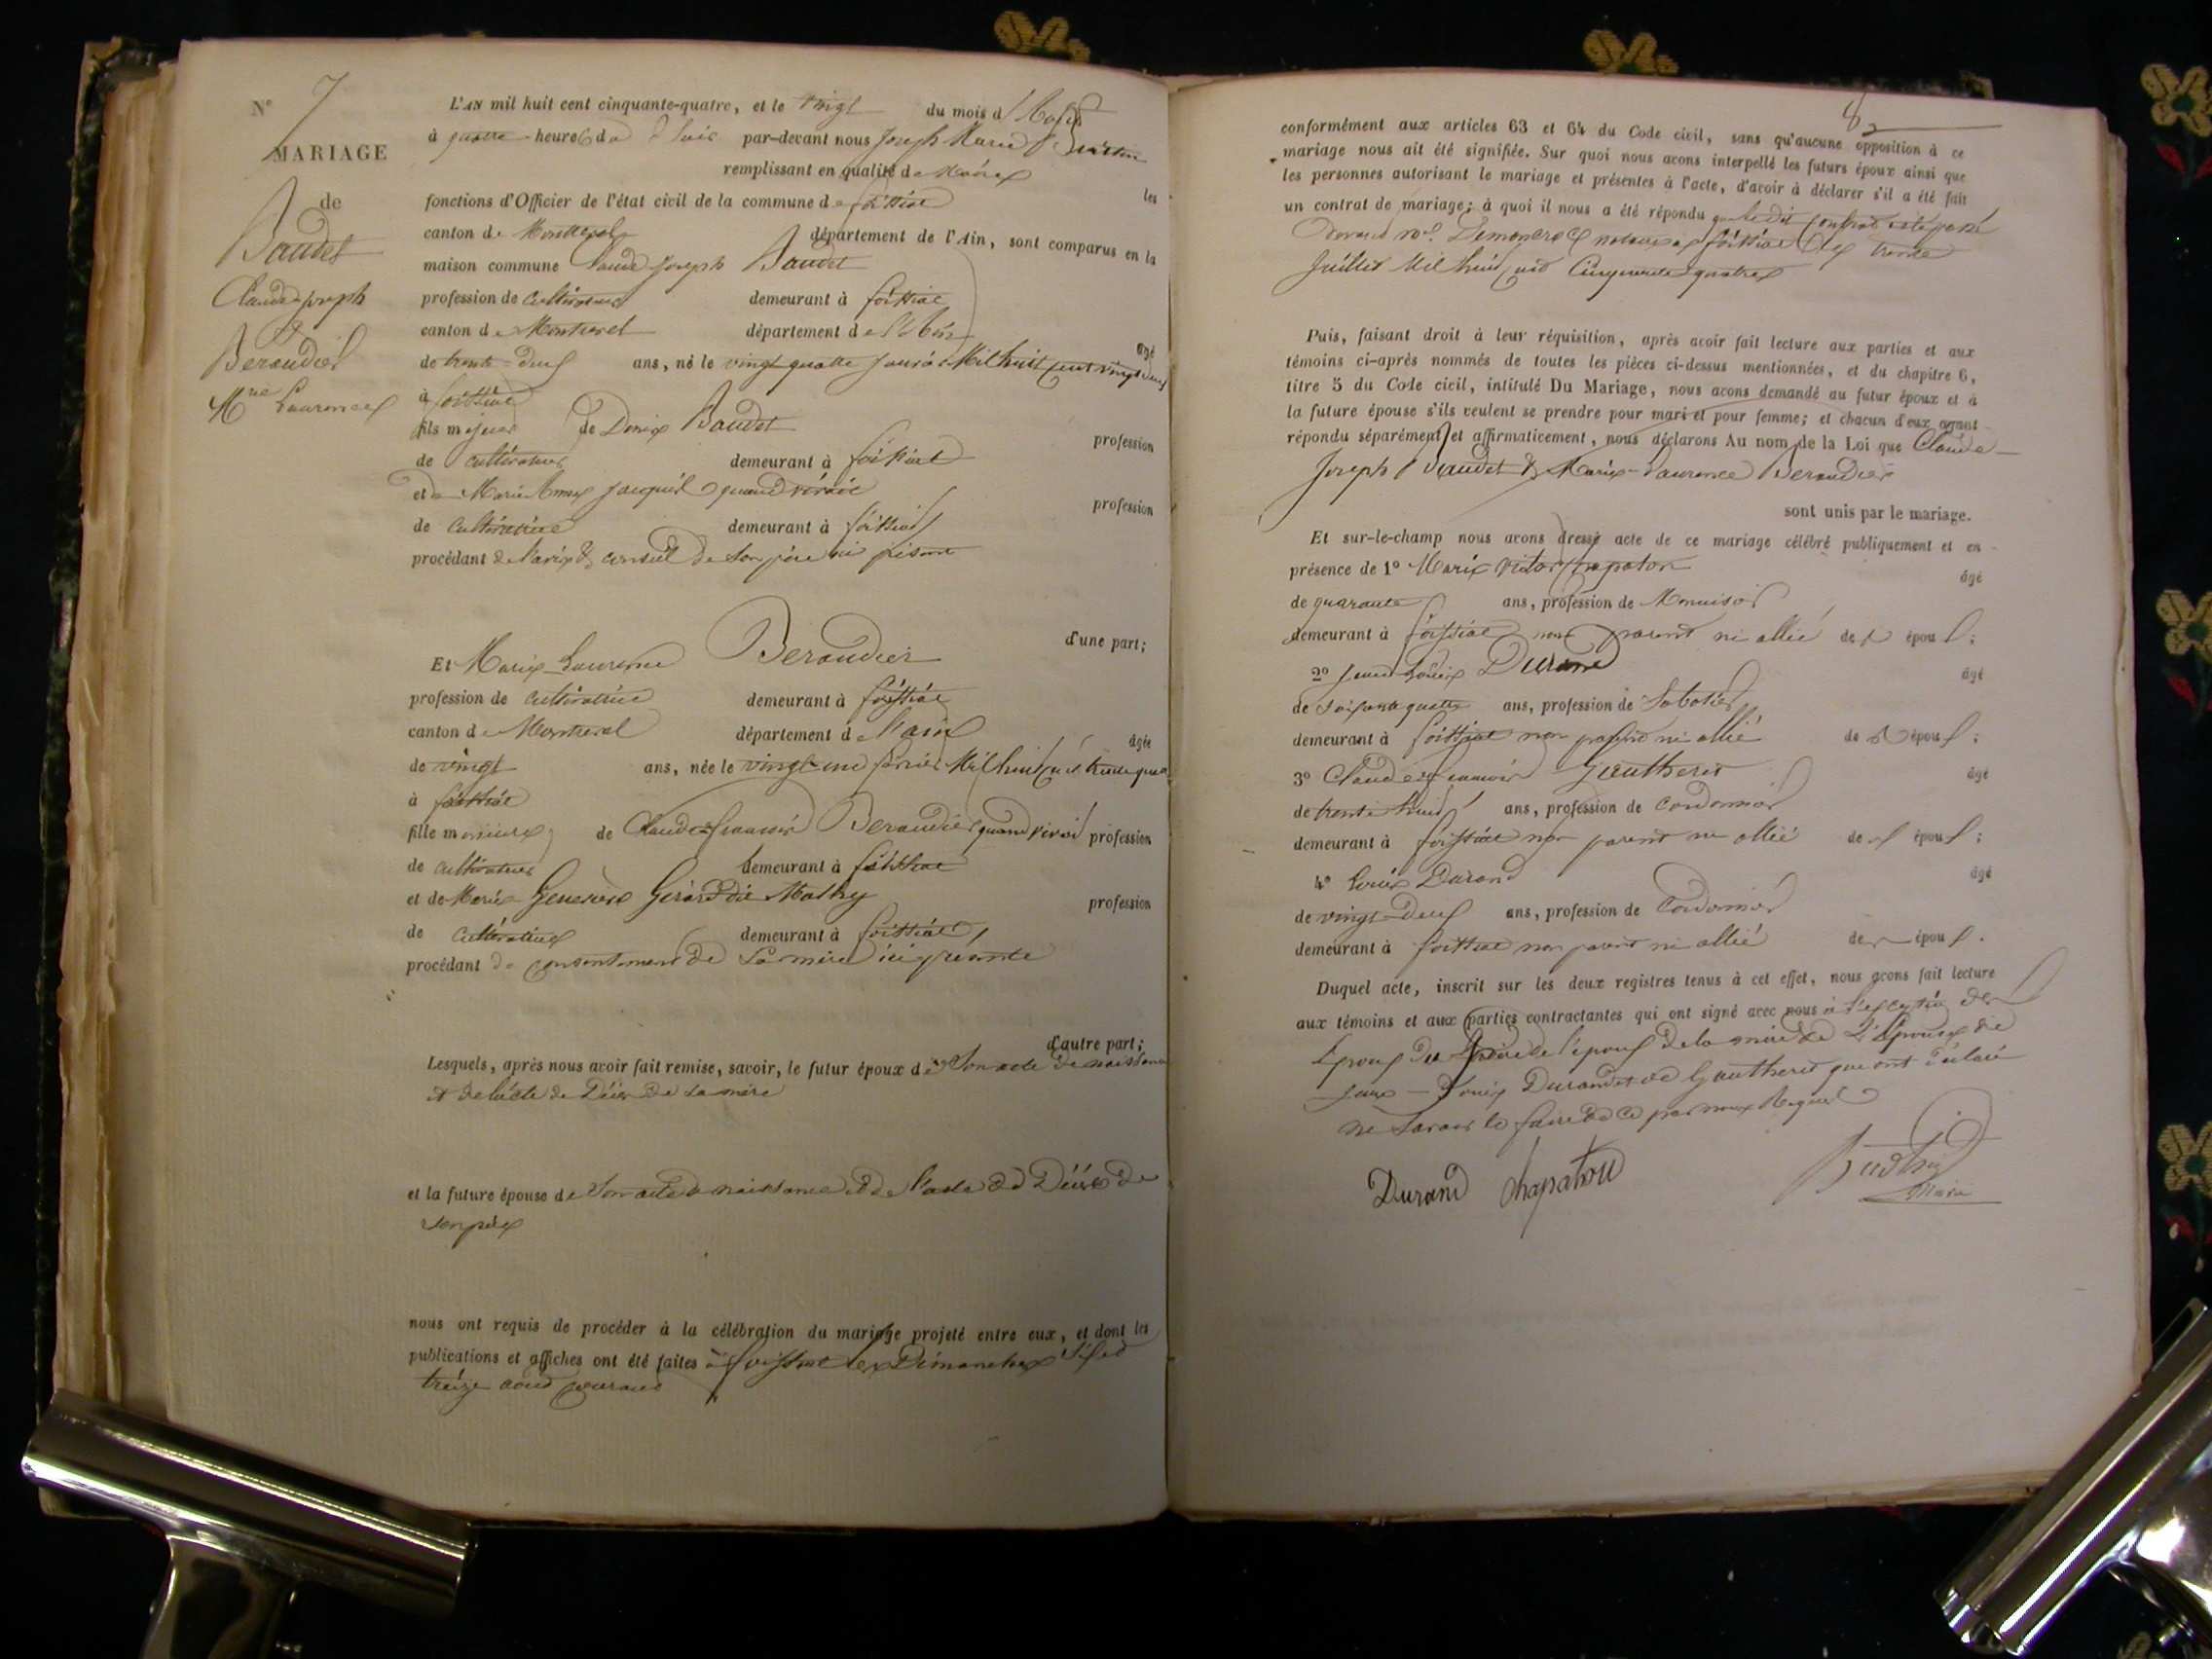 N° 7
MARIAGE
de
Baudet
Claude Joseph
Et
Beraudier
Mrie Laurence
L'AN mil huit cent cinquante-quatre, et le vingt du mois d'Aout
à quatre heures du soir par-devant nous Joseph Marie
remplissant en qualité de Maire les
fonctions d'Officier de l'état civil de la commune de foissiat
canton de Montrevel département de l'Ain, sont comparus en la
maison commune Claude Joseph Baudet
profession de cultivateur demeurant à foissiat
canton de Montrevel département de l'Ain âgé
de trente-deux ans, né le vingt quatre Mil huit cent vingt deux
à foissiat
fils majeur de Denix Baudet profession
de cultivateur demeurant à foissiat
et de Marie Anne quand vivait profession
de cultivatrice demeurant à foissiat
procédant de l'avix & conseil de son père ici présent
d'une part;
Et Marie-Laurence Beraudier
profession de cultivatrice demeurant à foissiat
canton de Montrevel département de l'ain âgée
de vingt ans, née le vingt-un février Mil huit cent trente quatre
à foissiat
fille mineure de Claude-francois Beraudier quand vivait profession
de cultivateur demeurant à foissiat
et de Marie Genevieve Gérard dit Mathy profession
de cultivatrice demeurant à foissiat
procédant du consentement de sa mère ici présente
d'autre part;
Lesquels, après nous avoir fait remise, savoir, le futur époux de son acte de naissance
et de l'acte de Décès de sa mère
et la future épouse de son acte de naissance et de l'acte de Décès de
son père
nous ont requis de procéder à la célébration du mariage projeté entre eux, et dont les
publications et affiches ont été faites à foissiat les Dimanches six et
treize aout courant
8
conformément aux articles 63 et 64 du Code civil, sans qu'aucune opposition à ce
mariage nous ait été signifiée. Sur quoi nous avons interpellé les futurs époux ainsi que
les personnes autorisant le mariage et présentes à l'acte, d'avoir à déclarer s'il a été fait
un contrat de mariage; à quoi il nous a été répondu que ledit contrat a été passé
devant notaire à foissiat le trente
juillet Mil huit cent cinquante quatre
Puis, faisant droit à leur réquisition, après avoir fait lecture aux parties et aux
témoins ci-après nommés de toutes les pièces ci-dessus mentionnées, et du chapitre 6,
titre 5 du Code civil, intitulé Du Mariage, nous avons demandé au futur époux et à
la future épouse s'ils veulent se prendre pour mari et pour femme; et chacun d'eux ayant
répondu séparément et affirmativement, nous déclarons Au nom de la Loi que Claude
Joseph Baudet & Marie-Laurence Beraudier
sont unis par le mariage.
Et sur-le-champ nous avons dressé acte de ce mariage célébré publiquement et en
présence de 1° Marie Victor Chapaton âgé
de quarante ans, profession de Menuisier
demeurant à foissiat non parent ni allié des époux;
2° Jean Louix Durand âgé
de soixante quatre ans, profession de Sabotier
demeurant à foissiat non parent ni allié des époux;
3° Claude francois Gautheret âgé
de trente huit ans, profession de cordonnier
demeurant à foissiat non parent ni allié des époux;
4° Louix Durand âgé
de vingt-deux ans, profession de Cordonnier
demeurant à foissiat non parent ni allié des époux.
Duquel acte, inscrit sur les deux registres tenus à cet effet, nous avons fait lecture
aux témoins et aux parties contractantes qui ont signé avec nous à l'exception des
Epoux du père de l'époux de la mère de l'épouse de
Jean-Louix Durand et de Gautheret qui ont déclaré
ne savoir le faire de ce par noux Requis
Durand Chapaton
Maire